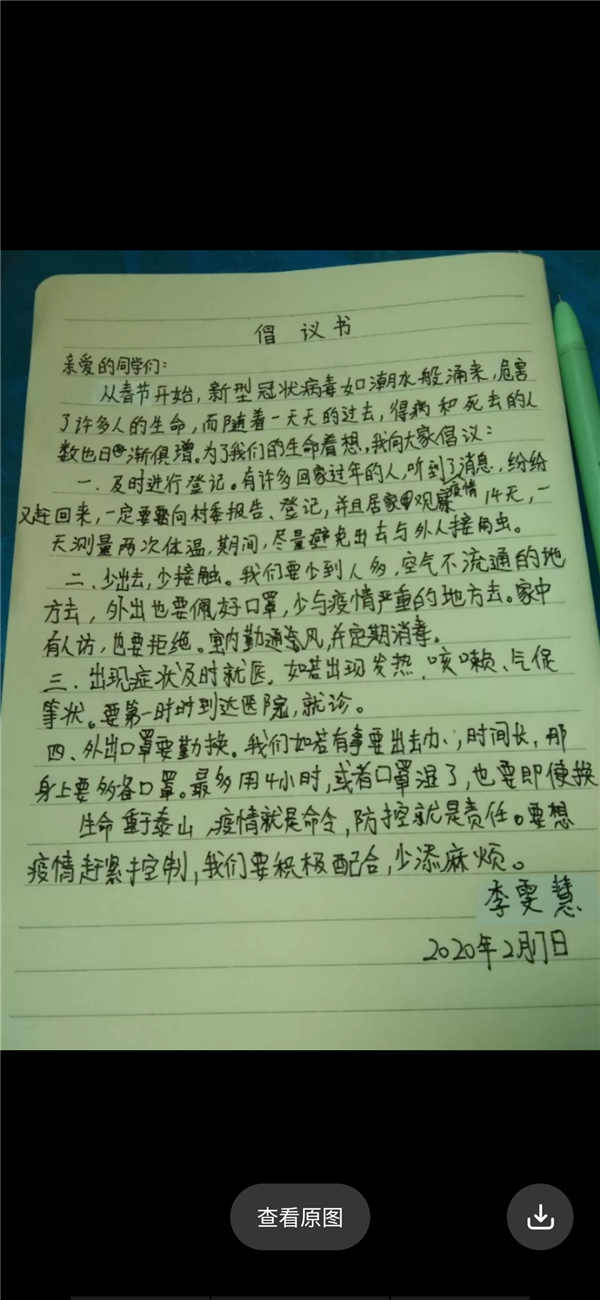 倡议书
亲爱的同学们：
从春节开始，新型冠状病毒如潮水般涌来，危害
了许多人的生命，而随着一天天的过去，得病和死去的人
数也日渐俱增。为了我们的生命着想，我向大家倡议：
一、及时进行登记。有许多回家过年的人，听到了消息，纷纷
又赶回来，一定要向村委报告、登记，并且居家观察疫情14天，一
天测量两次体温，期间，尽量避免出去与外人接触。
二、少出去，少接触。我们要少到人多，空气不流通的地
方去，外出也要佩好口罩，少与疫情严重的地方去。家中
有人访，也要拒绝。室内勤通风，并定期消毒。
三、出现症状及时就医，如若出现发热、咳嗽、气促
等状。要第一时时到达医院，就诊。
四、外出口罩要勤换。我们如若有事要出去办，时间长，那
身上要多备口罩。最多用4小时，或者口罩湿了，也要即使换
生命重于泰山，疫情就是命令，防控就是责任。要想
疫情赶紧控制，我们要积极配合，少添麻烦。
李雯慧
2020年2月17日
查看原图